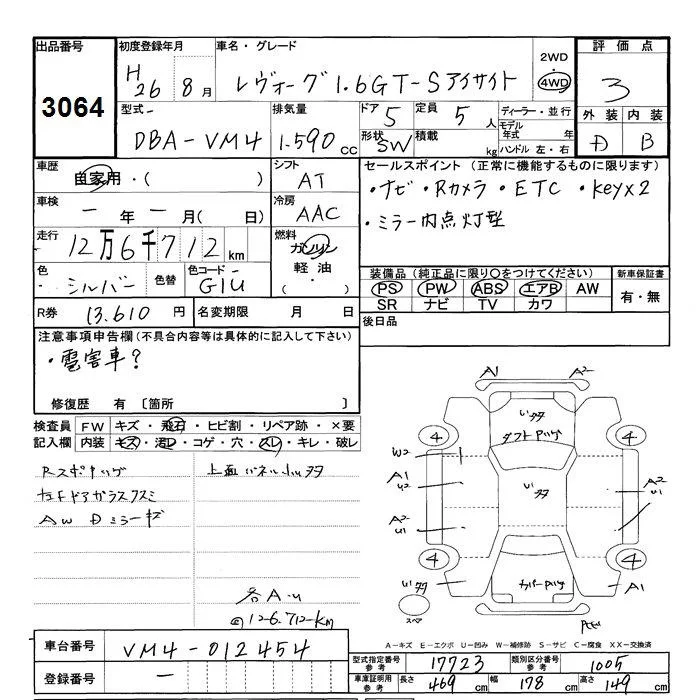 出品番号 3064
初度登録年月 H26 8月
車名・グレード レヴォーグ1.6GT-Sアイサイト
2WD
4WD
評価点 3
外装 D 内装 B
型式 DBA-VM4
排気量 1.590cc
ドア 5
形状 SW
定員 5人
積載 kg
ディーラー・並行
モデル年式 年式
ハンドル 左・右
車歴 自家用・( )
シフト AT
車検 ー年ー月( 日)
冷房 AAC
走行 12万6千712km
燃料 ガソリン
軽油・( )
色 シルバー 色替
色コード G1U
R券 13.610円
名変期限 月 日
セールスポイント(正常に機能するものに限ります)
・ナビ・Rカメラ・ETC・Key×2
・ミラー内点灯型
装備品(純正品に限り○をつけてください) 新車保証書
PS PW ABS エアB AW 有・無
SR ナビ TV カワ
後日品
注意事項申告欄(不具合内容等は具体的に記入して下さい)
・雹害車?
修復歴 有 〔箇所 〕
検査員 FW キズ・飛石・ヒビ割・リペア跡・×要
記入欄 内装 キズ・汚レ・コゲ・穴・スレ・キレ・破レ
AW Dミラーキズ
各A-U
@126.712-km
A1 A2
4 4
W2
A1
U2
A2
U1
A2
U1
4 4
A1
スペア
A-キズ E-エクボ U-凹み W-補修跡 S-サビ C-腐食 XX-交換済
車台番号 VM4-012454
登録番号 ー
型式指定番号 参考 17723 類別区分番号 参考 1005
車庫証明用 参考 長さ 469cm 幅 178cm 高さ 149cm